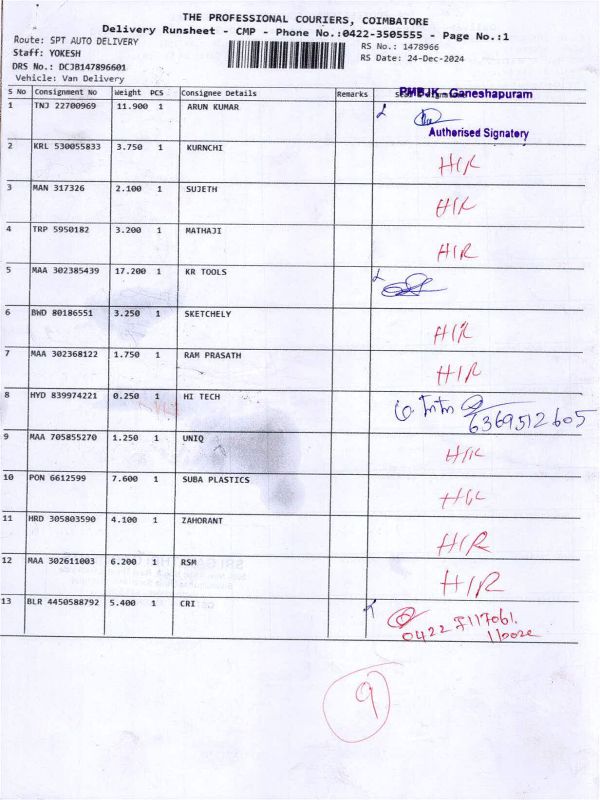 THE PROFESSIONAL COURIERS, COIMBATORE
Delivery Runsheet - CMP - Phone No.:0422-3505555 - Page No.:1
Route: SPT AUTO DELIVERY
RS No.: 1478966
Staff: YOKESH
RS Date: 24-Dec-2024
DRS No.: DCJB147896601
Vehicle: Van Delivery
S No Consignment No Weight PCS Consignee Details Remarks
PMBJK - Ganeshapuram
1 TNJ 22700969 11.900 1 ARUN KUMAR
Authorised Signatory
2 KRL 530055833 3.750 1 KURNCHI H/R
3 MAN 317326 2.100 1 SUJETH H/R
4 TRP 5950182 3.200 1 MATHAJI H/R
5 MAA 302385439 17.200 1 KR TOOLS
6 BWD 80186551 3.250 1 SKETCHELY H/R
7 MAA 302368122 1.750 1 RAM PRASATH H/R
8 HYD 839974221 0.250 1 HI TECH
6369512605
9 MAA 705855270 1.250 1 UNIQ H/R
10 PON 6612599 7.600 1 SUBA PLASTICS H/R
11 HRD 305803590 4.100 1 ZAHORANT H/R
12 MAA 302611003 6.200 1 RSM H/R
13 BLR 4450588792 5.400 1 CRI
0422 7117061
9